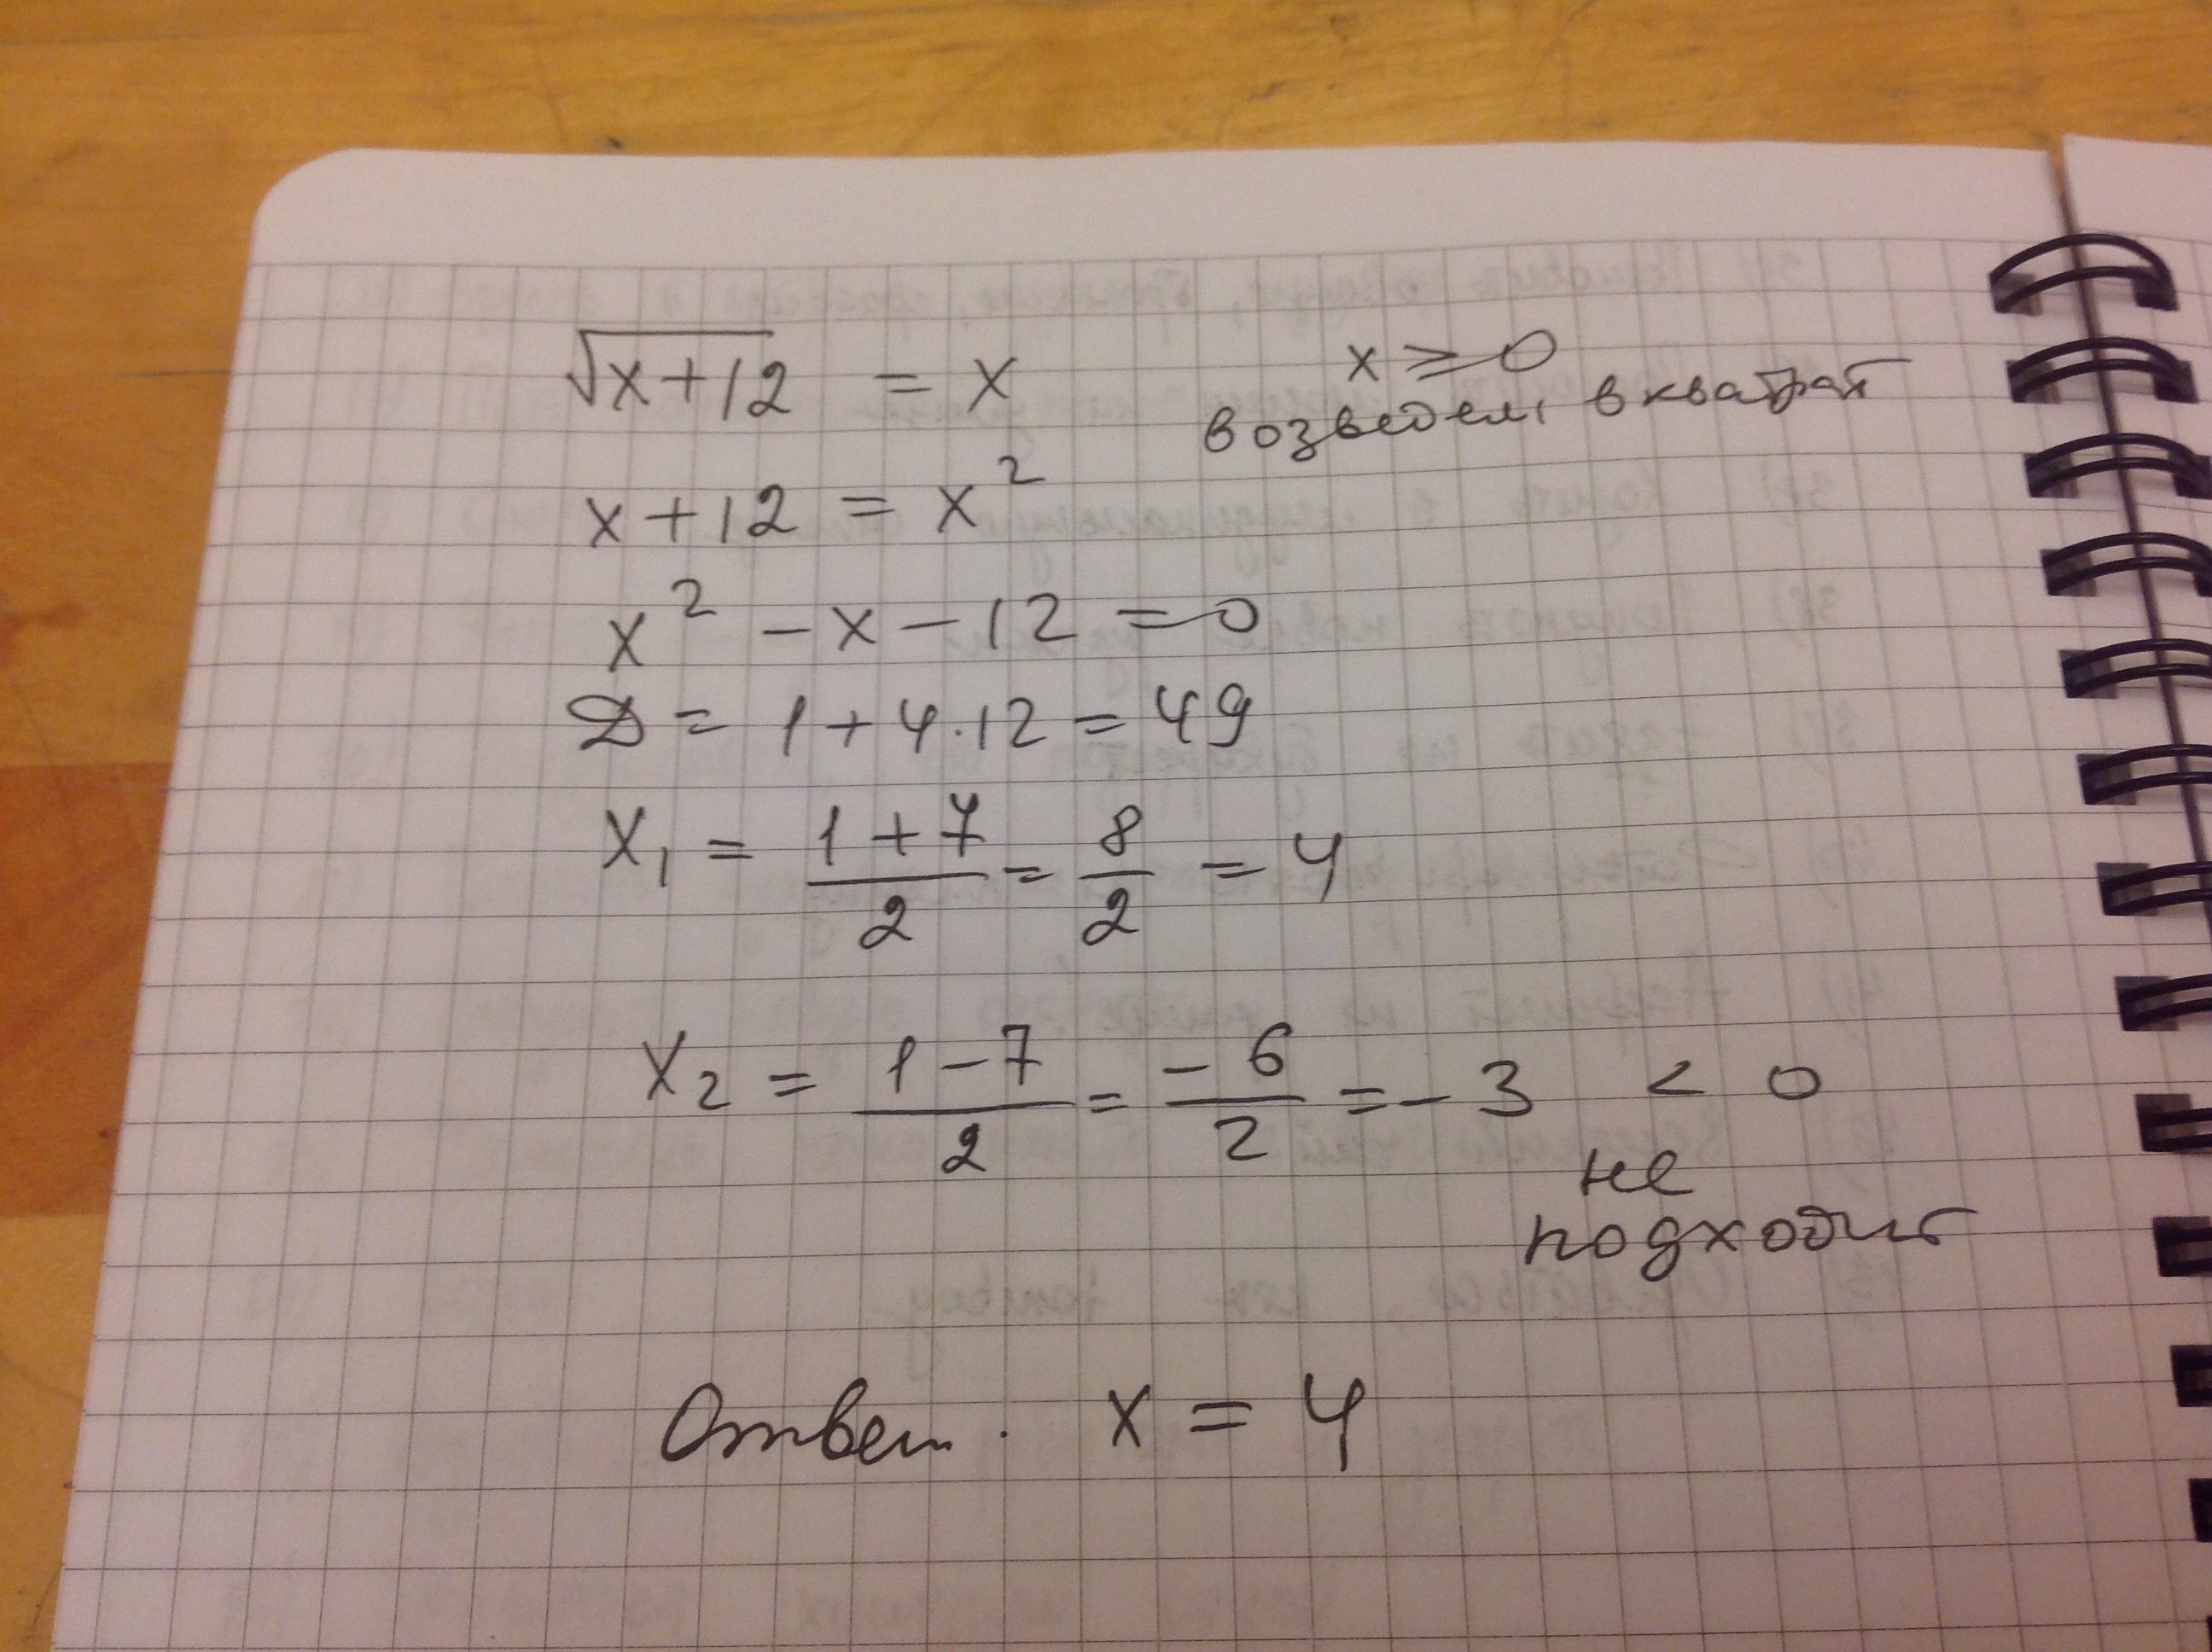 √x+12 = x x ≥ 0
возведем в квадрат
x+12 = x²
x² - x - 12 = 0
D = 1 + 4·12 = 49
x₁ = (1+7)/2 = 8/2 = 4
x₂ = (1-7)/2 = -6/2 = -3 < 0
не
подходит
Ответ. x = 4